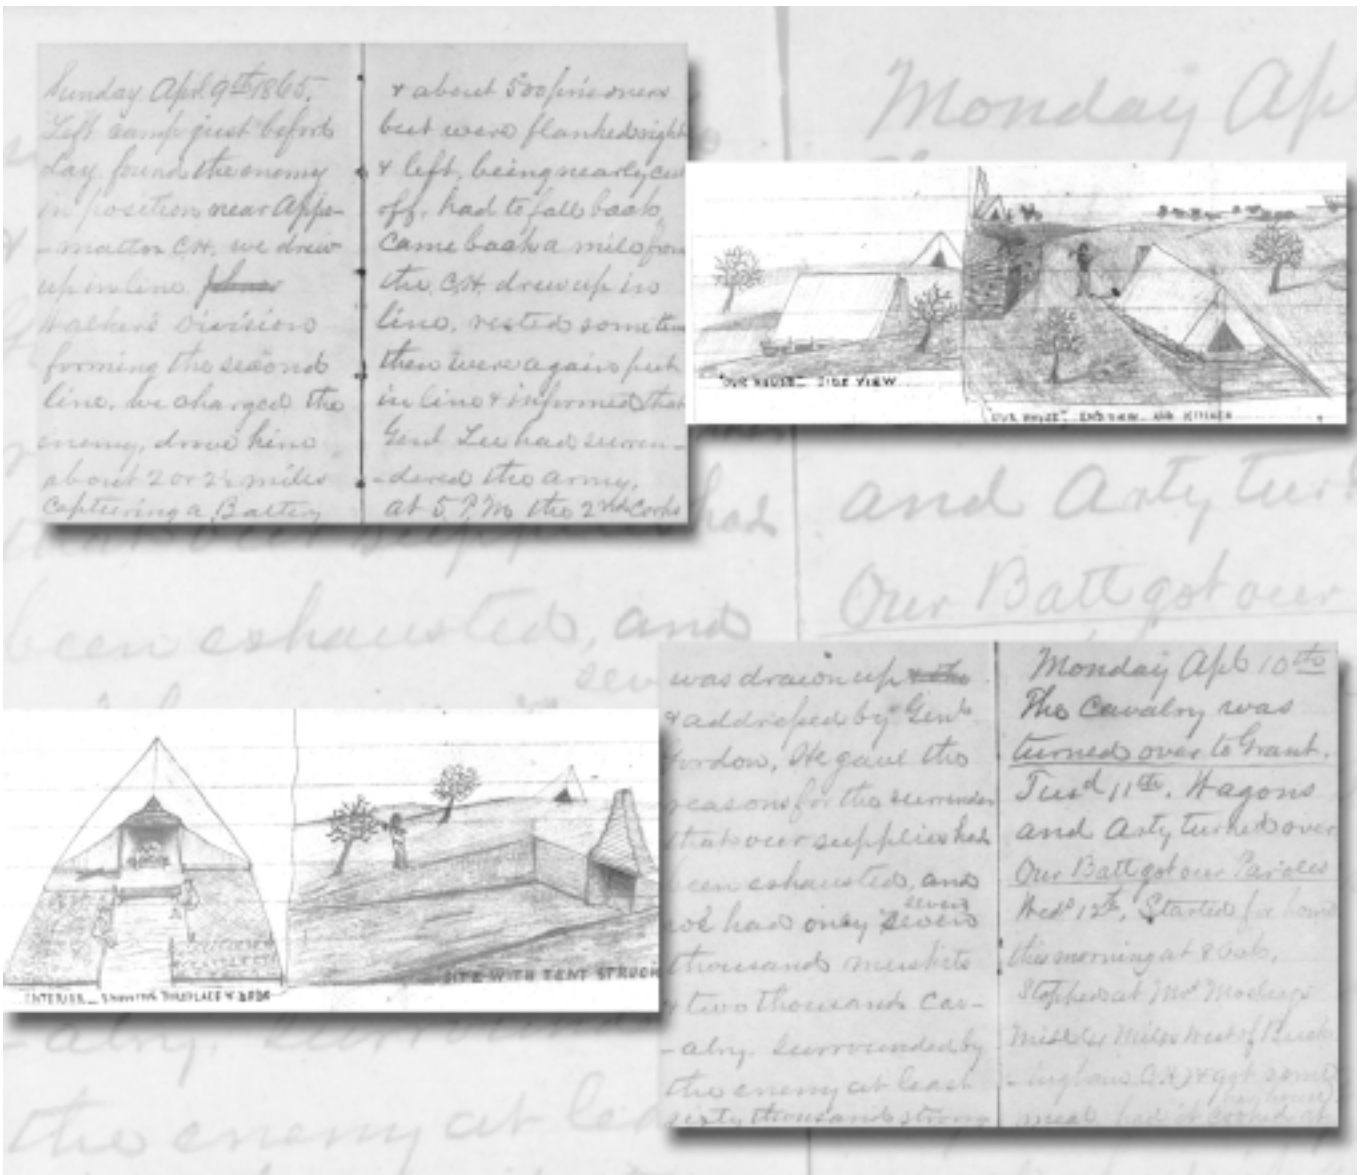 Sunday Apl. 9th 1865.
Left camp just before
day. found the enemy
in position near Appo-
-mattox C.H. we drew
up in line.
Walker's Division
forming the second
line. we charged the
enemy, drove him
about 2 or 2½ miles
Capturing a Battery
& about 500 prisoners
but were flanked right
& left, being nearly cut
off, had to fall back.
Came back a mile from
the C.H. drew up in
line, rested sometime
then were again put
in line & informed that
Genl Lee had surren-
-dered the army.
at 5 P.M. the 2nd Corps
"OUR HOUSE" SIDE VIEW
"OUR HOUSE" END VIEW AND KITCHEN
INTERIOR SHOWING FIREPLACE & BEDS
SITE WITH TENT STRUCK
was drawn up & the
& addressed by Genl
Gordon, He gave the
reasons for the surrender
that our supplies had
been exhausted, and
seven
we had only seven
thousand muskets
& two thousand Cav-
-alry. Surrounded by
the enemy at least
sixty thousand strong
Monday Apl 10th
The Cavalry was
turned over to Grant.
Tusd 11th. Wagons
and Arty turned over
Our Batt got our Paroles
Wed 12th. Started for home
this morning at 8 Oclk.
Stopped at Mr
Miles West of Buck-
-ingham C.H. & got some
meal had it cooked at
Monday Apl
and Arty turn
Our Batt got our
that our supplies had
been exhausted, and
-alry. Surrounde
the enemy at lea